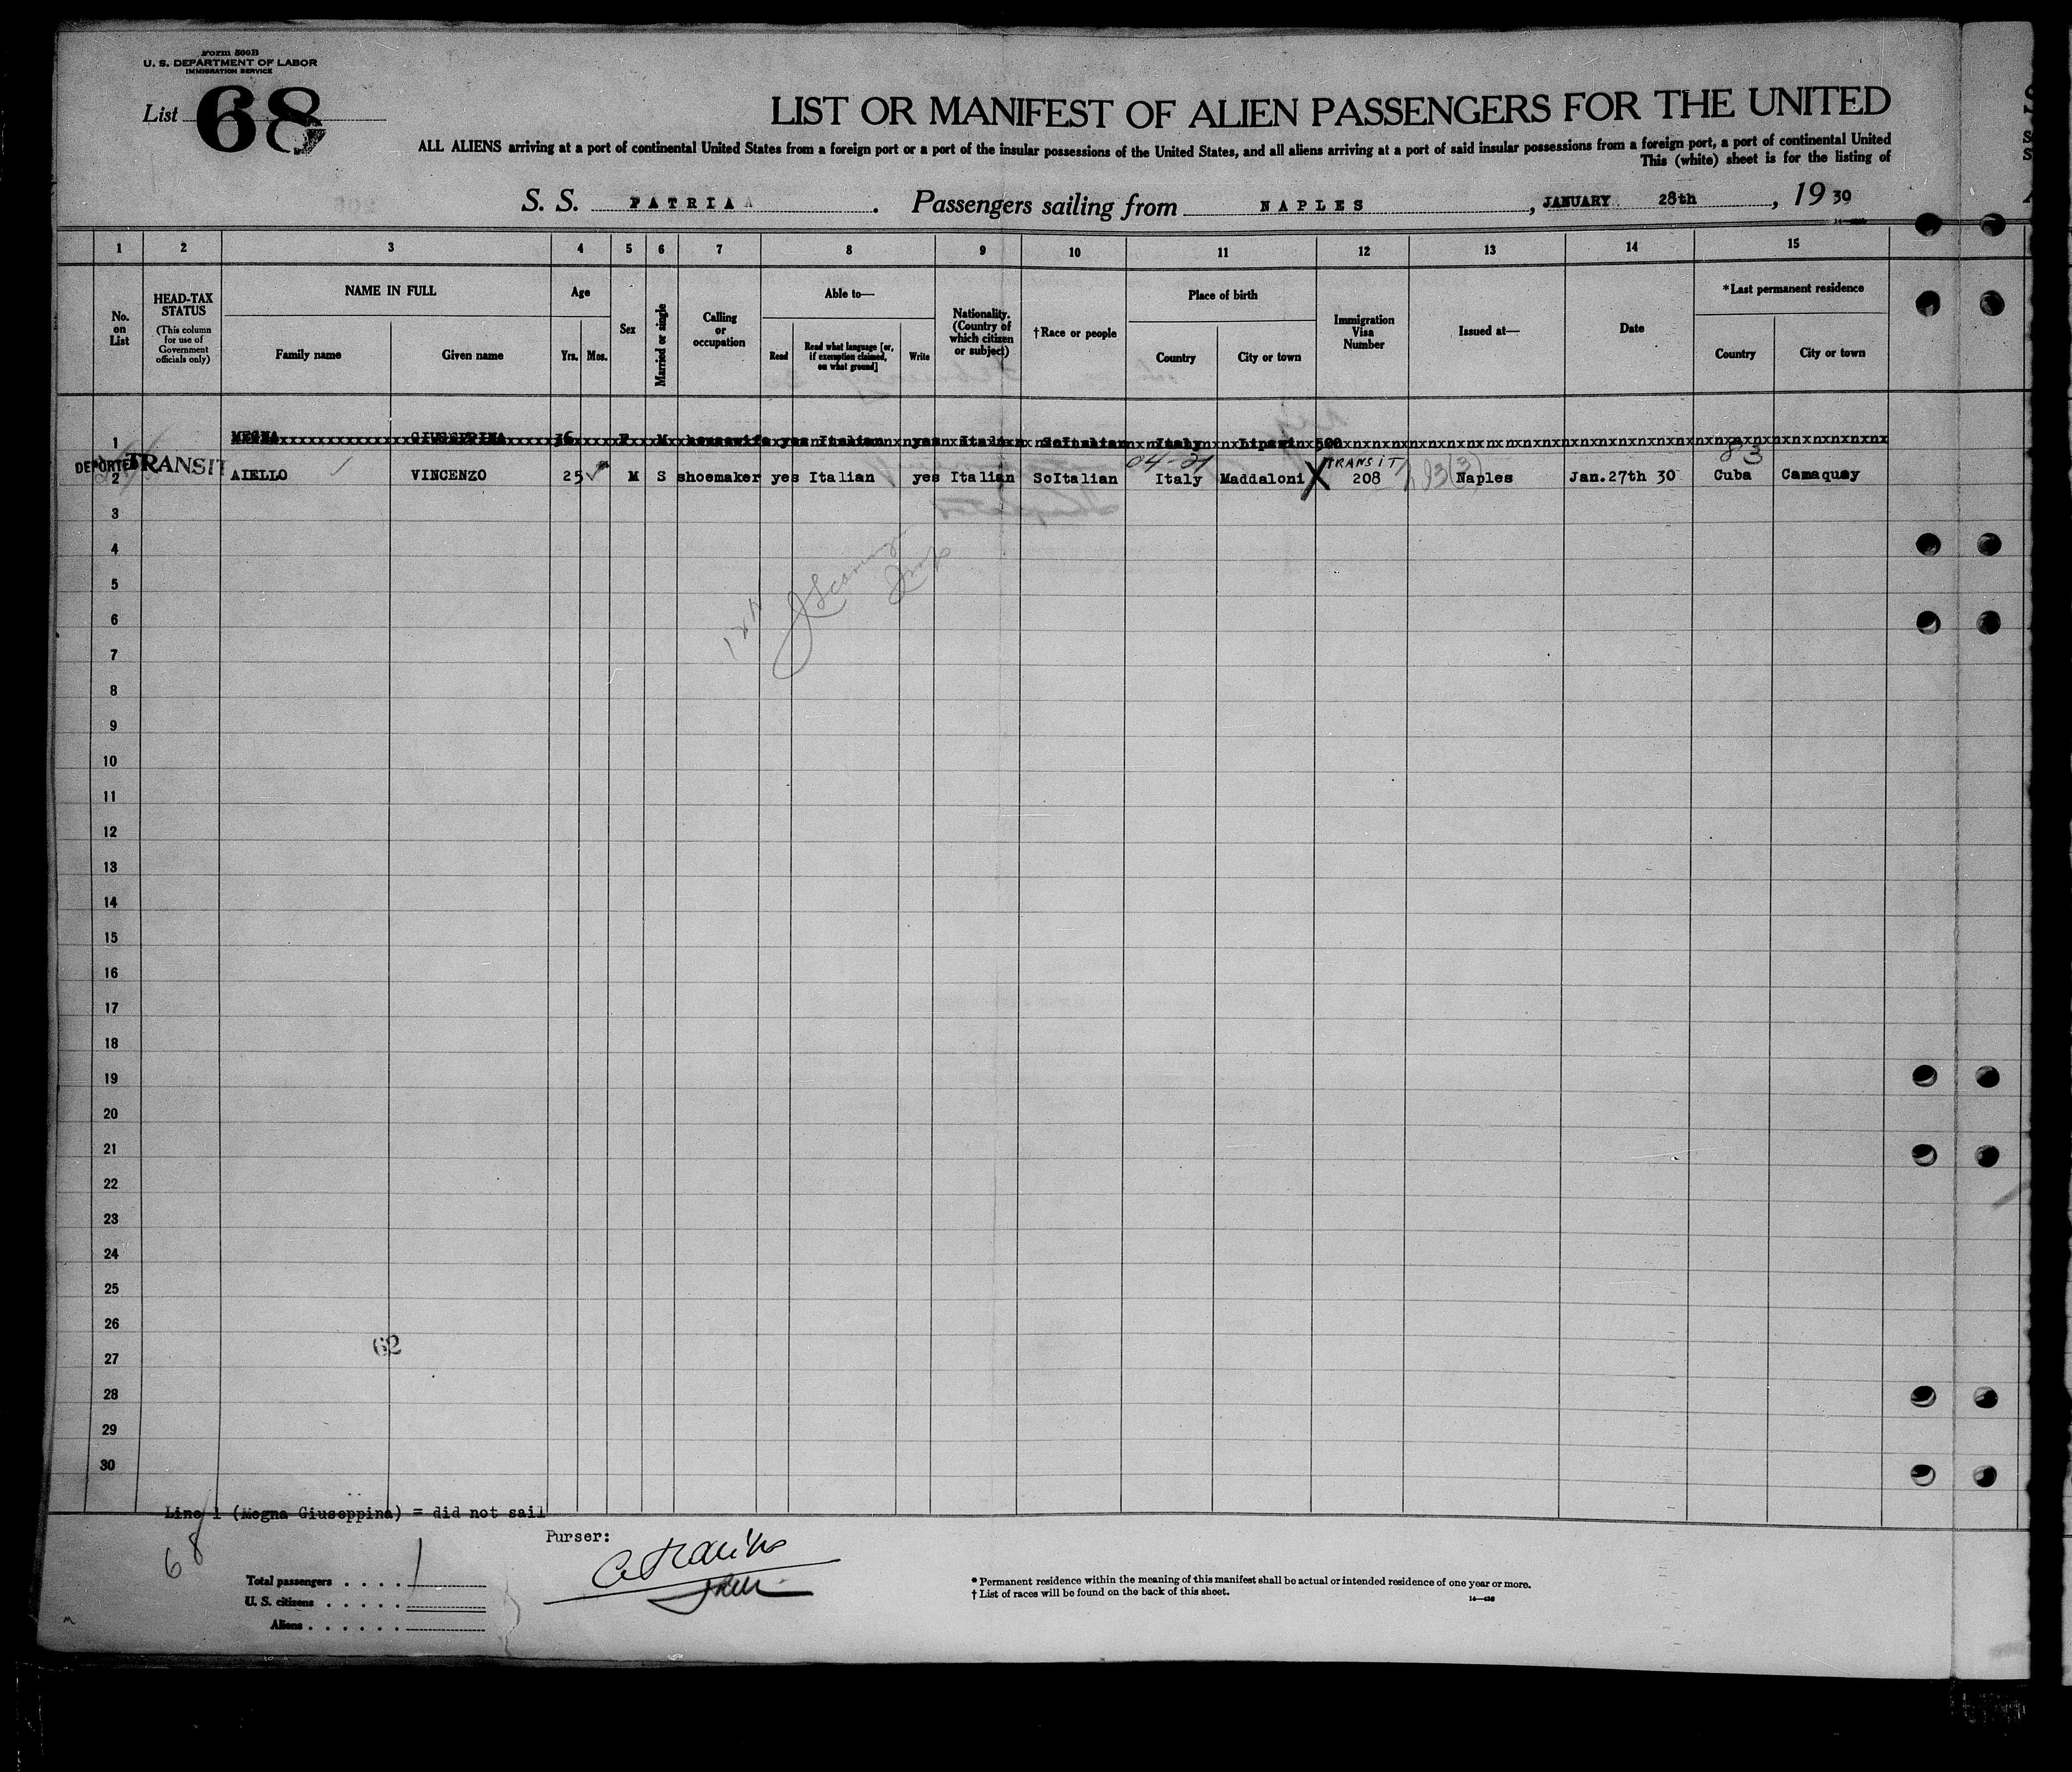 Form 500B
U. S. DEPARTMENT OF LABOR
IMMIGRATION SERVICE
List 68
LIST OR MANIFEST OF ALIEN PASSENGERS FOR THE UNITED
ALL ALIENS arriving at a port of continental United States from a foreign port or a port of the insular possessions of the United States, and all aliens arriving at a port of said insular possessions from a foreign port, a port of continental United
This (white) sheet is for the listing of
S. S. PATRIA . Passengers sailing from NAPLES , JANUARY 28th , 19 30
1 2 3 4 5 6 7 8 9 10 11 12 13 14 15
No. on List
HEAD-TAX STATUS
(This column for use of Government officials only)
NAME IN FULL
Family name Given name
Age
Yrs. Mos.
Sex
Married or single
Calling or occupation
Able to—
Read
Read what language [or, if exemption claimed, on what ground]
Write
Nationality. (Country of which citizen or subject)
†Race or people
Place of birth
Country City or town
Immigration Visa Number
Issued at—
Date
*Last permanent residence
Country City or town
1 MEGNA GIUSEPPINA F M housewife yes Italian yes Italian SoItalian Italy Lipari 500
DEPORTED TRANSIT
04-21 TRANSIT 83
2 AIELLO VINCENZO 25 M S shoemaker yes Italian yes Italian SoItalian Italy Maddaloni X 208 Naples Jan.27th 30 Cuba Camaquey
3
4
5
6
7
8
9
10
11
12
13
14
15
16
17
18
19
20
21
22
23
24
25
26
62
27
28
29
30
Line 1 (Megna Giuseppina) = did not sail
68
Purser:
Total passengers . . . . 1
U. S. citizens . . . . .
Aliens . . . . . .
* Permanent residence within the meaning of this manifest shall be actual or intended residence of one year or more.
† List of races will be found on the back of this sheet.